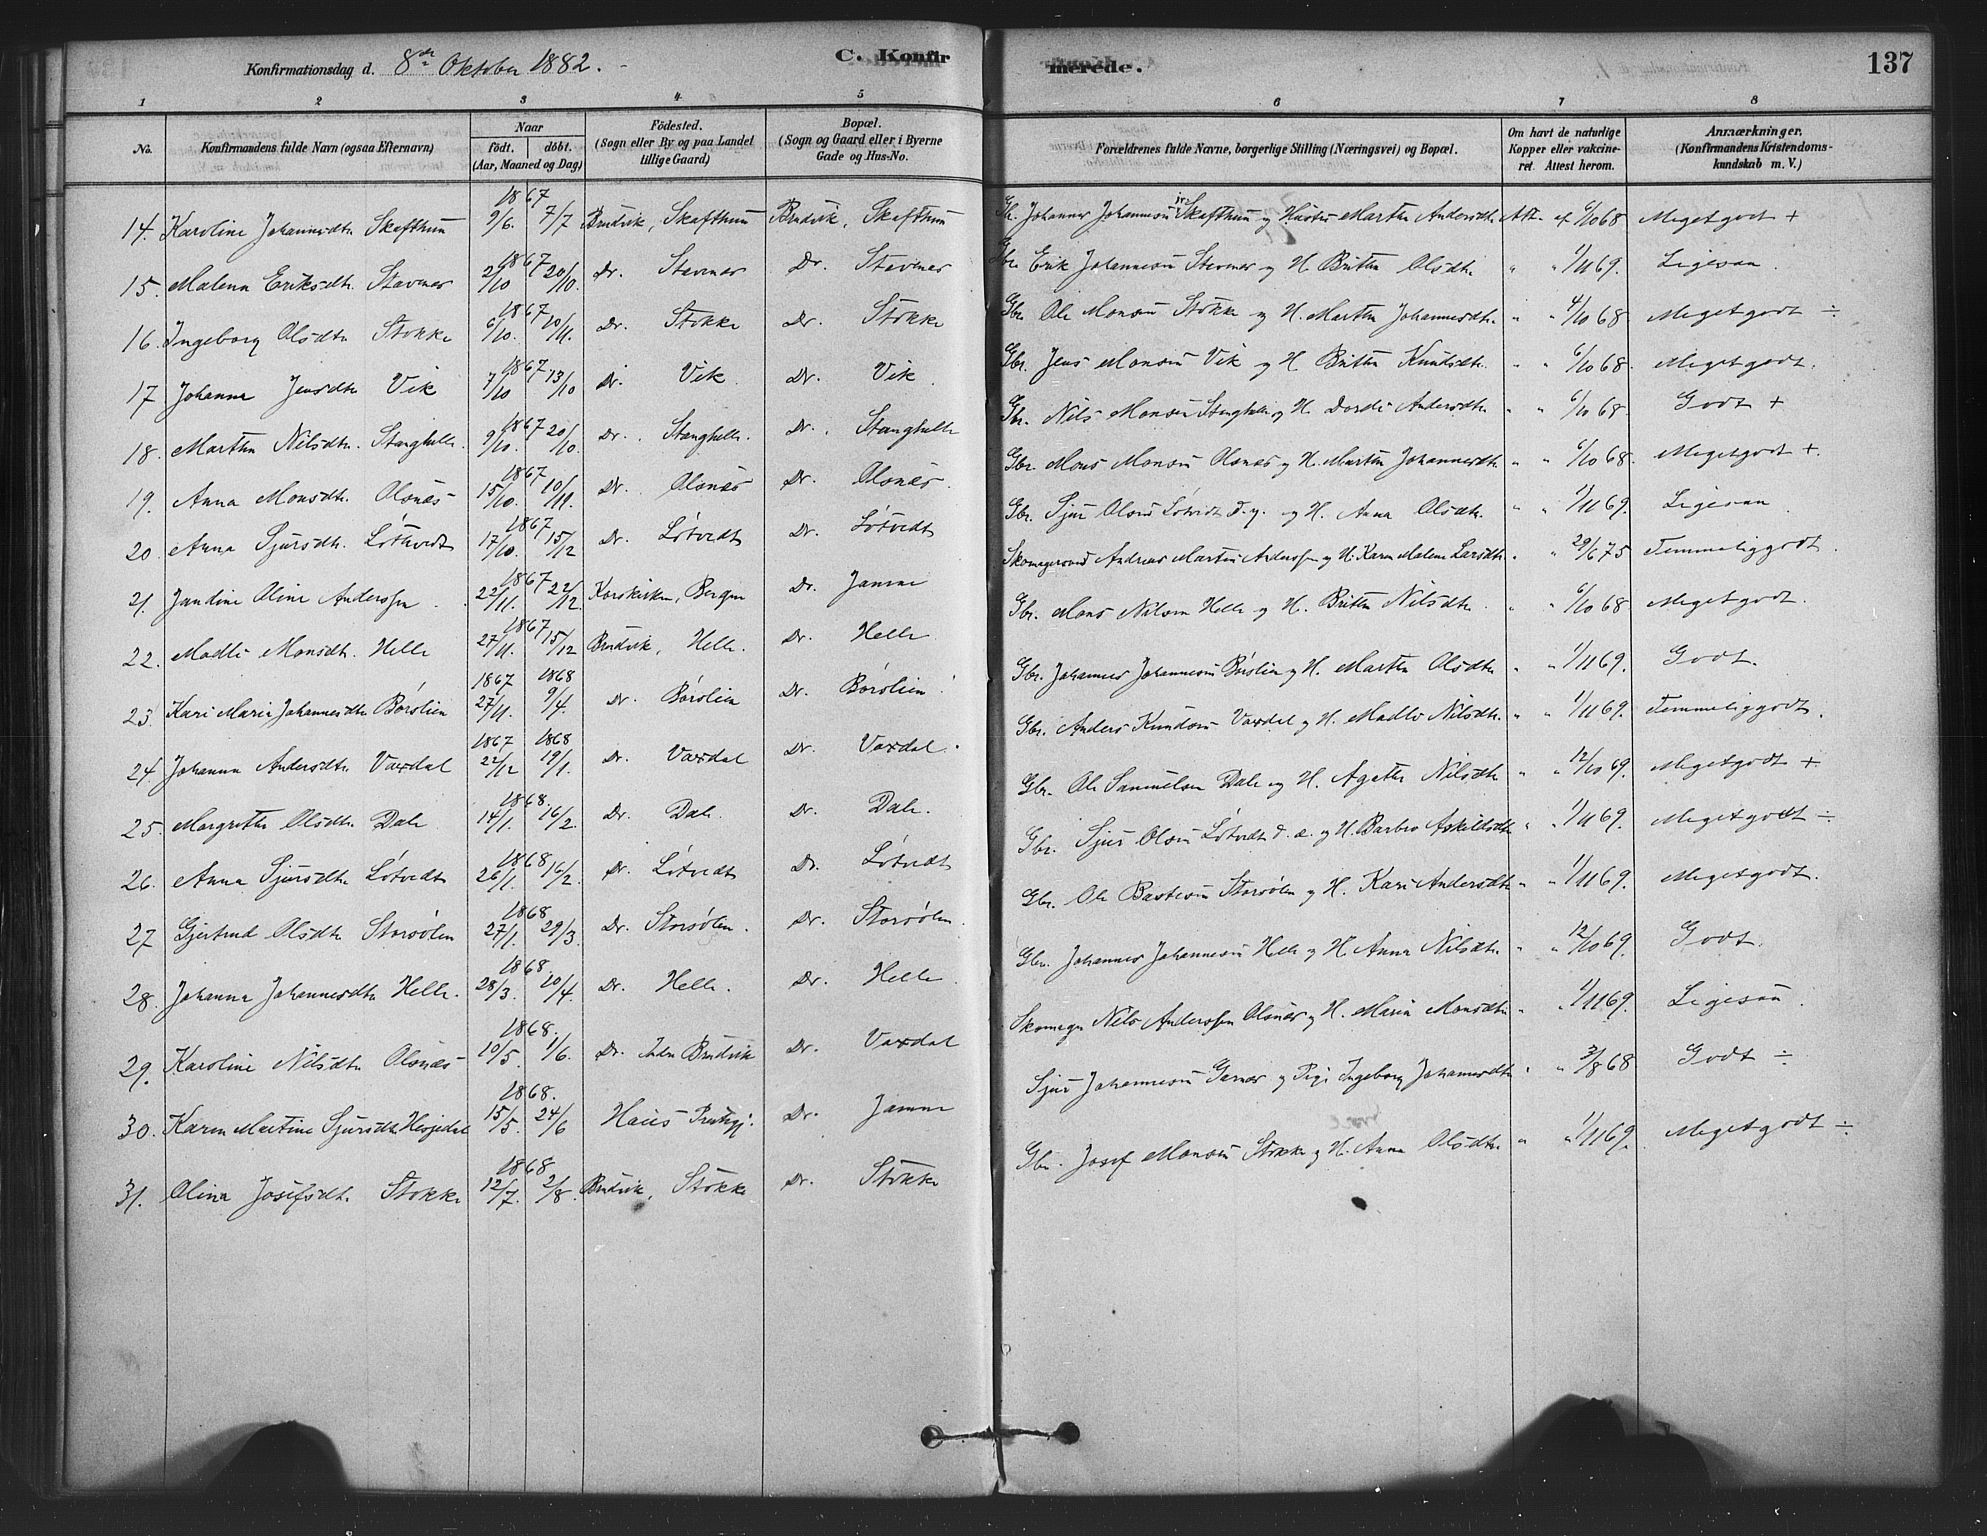 Konfirmationsdag d. 8de Oktober 1882. C. Konfirmerede. 137
1 2 3 4 5 6 7 8
No. Konfirmandens fulde Navn (ogsaa Efternavn) Naar født. døbt. (Aar, Maaned og Dag) Fødested. (Sogn eller By og paa Landet tillige Gaard) Bopæl. (Sogn og Gaard eller i Byerne Gade og Hus-No. Forældrenes fulde Navne, borgerlige Stilling (Næringsvei) og Bopæl. Om havt de naturlige Kopper eller vakcineret. Attest herom. Anmærkninger. (Konfirmandens Kristendomskundskab m. V.)
14. Karoline Johannesdtr Skafthun 1867 9/6. 7/7 Brudvik, Skafthun Brudvik, Skafthun Gbr. Johannes Johannesen Skafthun og Hustru Martha Andersdtr Att. af 6/10 68 Megetgodt +
15. Malena Eriksdtr. Stavenes 1867 2/10 20/10. Do. Stavenes Do. Stavenes Gbr Erik Johannesen Stavenes og H. Britha Olsdtr " " 1/11 69. Ligesaa.
16. Ingeborg Olsdtr Stokke 1867 6/10. 10/11. Do. Stokke Do. Stokke Gbr. Ole Monsen Stokke og H. Martha Johannesdtr. " " 4/10 68 Megetgodt ÷
17 Johanna Jensdtr Vik 1867 7/10 13/10 Do. Vik. Do. Vik. Gbr. Jens Monsen Vik og H. Britha Knudsdtr. " " 6/10 68. Megetgodt.
18. Martha Nilsdtr. Stanghelle. 1867 9/10. 20/10. Do. Stanghelle. Do. Stanghelle Gbr. Nils Monsen Stanghelle og H. Dordi Andersdtr " " 6/10 68. Godt +
19. Anna Monsdtr. Olsnæs 1867 15/10. 10/11. Do. Olsnæs Do. Olsnæs. Gbr. Mons Monsen Olsnæs og H. Martha Johannesdtr. " " 6/10 68. Megetgodt +.
20. Anna Sjursdtr. Løtvedt 1867 17/10. 15/12 Do. Løtvedt Do. Løtvedt Gbr. Sjur Olsen Løtvedt d. y. og H. Anna Olsdtr. " " 1/11 69. Ligesaa
21. Jandine Oline Andersen. 1867 22/11. 22/12. Korskirken, Bergen Do. Jamne Skomagersvend Andreas Martin Andersen og H. Karen Malene Larsdtr " " 29/6 75 Temmeliggodt.
22. Madli Monsdtr. Helle 1867 27/11. 15/12 Brudvik, Helle. Do. Helle Gbr. Mons Nilsen Helle og H. Britha Nilsdtr. " " 6/10 68 Megetgodt.
23. Kari Maria Johannesdtr Børslien 1867 27/11. 1868 9/4. Do. Børslien Do. Børslien Gbr. Johannes Johannesen Børslien og H. Martha Olsdtr " " 1/11 69. Godt.
24. Johanna Andersdtr Vaxdal 1867 22/12 1868 19/1. Do. Vaxdal Do. Vaxdal. Gbr. Anders Knudsen Vaxdal og H. Madli Nilsdtr. " " 1/11 69. Temmeliggodt.
25. Margretha Olsdtr Dale 1868. 14/1. 16/2. Do. Dale. Do. Dale. Gbr. Ole Samuelsen Dale og H. Agatha Nilsdtr " " 12/10 69. Megetgodt +
26. Anna Sjursdtr Løtvedt 1868 26/1. 16/2. Do. Løtvedt Do. Løtvedt Gbr. Sjur Olsen Løtvedt d. æ. og H. Barbro Askildsdtr " " 1/11 69. Megetgodt ÷
27 Gjertrud Olsdtr Storsølen 1868 27/1. 29/3. Do. Storsølen. Do. Storsølen. Gbr. Ole Bastesen Storsølen og H. Kari Andersdtr " " 1/11 69. Megetgodt.
28. Johanna Johannesdtr Helle. 1868. 28/3. 20/4. Do. Helle. Do. Helle Gbr. Johannes Johannesen Helle og H. Anna Nilsdtr. " " 12/10 69. Godt.
29. Karoline Nilsdtr Olsnæs 1868. 10/5. 1/6. Do. Indre Brudvik Do. Vaxdal Skomager Nils Andersen Olsnæs og H. Maria Monsdtr " " 1/11 69. Ligesaa.
30. Karen Martine Sjursdtr Herfjedal 1868. 15/5. 24/6 Haus Do. Jamne Sjur Johannesen Garnæs og Pige Ingeborg Johannesdtr " " 3/8 68 Godt ÷
31. Olina Josefsdtr. Stokke 1868 12/7. 2/8. Brudvik, Stokke Do. Stokke Gbr. Josef Monsen Stokke og H. Anna Olsdtr " " 1/11 69. Megetgodt ÷